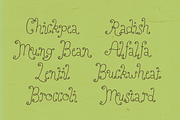 Chickpea
Mung Bean
Lentil
Broccoli
Radish
Alfalfa
Buckwheat
Mustard